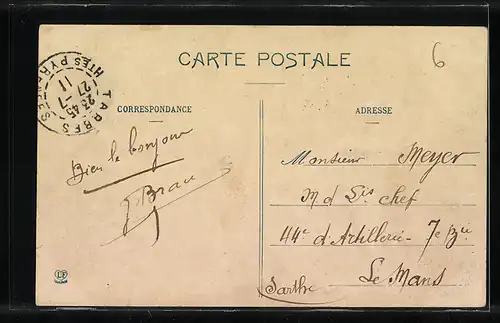 CARTE POSTALE
6
TARBES
HTES PYRÉNÉES
23 45
27 -7
11
CORRESPONDANCE
Bien le bonjour
ADRESSE
Monsieur Meyer
M d Lis chef
44e d'Artillerie - 7e Bie
Le Mans
Sarthe